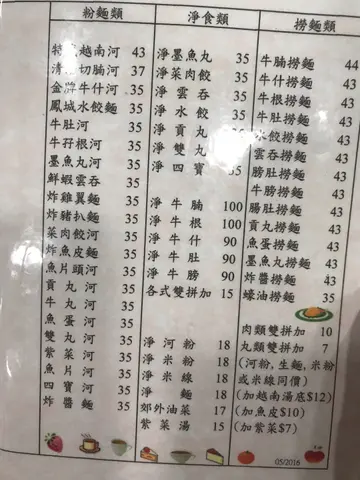 粉麵類
特[?]越南河 43
清[?]切腩河 37
金牌牛什河 35
鳳城水餃麵 35
牛肚河 35
牛孖根河 35
墨魚丸河 35
鮮蝦雲吞 35
炸雞翼麵 35
炸豬扒麵 35
菜肉餃河 35
炸魚皮麵 35
魚片頭河 35
貢丸河 35
牛丸河 35
魚蛋河 35
雙丸河 35
紫菜河 35
魚片河 35
四寶河 35
炸醬麵 35
淨食類
淨墨魚丸 35
淨菜肉餃 35
淨雲吞 35
淨水餃 35
淨貢丸 36
淨雙丸 35
淨四寶 35
淨牛腩 100
淨牛根 100
淨牛什 90
淨牛肚 90
淨牛膀 90
各式雙拼加 15
淨河粉 18
淨米粉 18
淨米線 18
淨麵 18
郊外油菜 17
紫菜湯 15
撈麵類
牛腩撈麵 44
牛什撈麵 43
牛根撈麵 43
牛肚撈麵 43
水餃撈麵 43
雲吞撈麵 43
膀肚撈麵 43
牛膀撈麵 43
腸肚撈麵 43
貢丸撈麵 43
魚蛋撈麵 43
墨魚丸撈麵 43
炸醬撈麵 43
蠔油撈麵 35
肉類雙拼加 10
丸類雙拼加 7
(河粉,生麵,米粉
或米線同價)
(加越南湯底$12)
(加魚皮$10)
(加紫菜$7)
05/2016